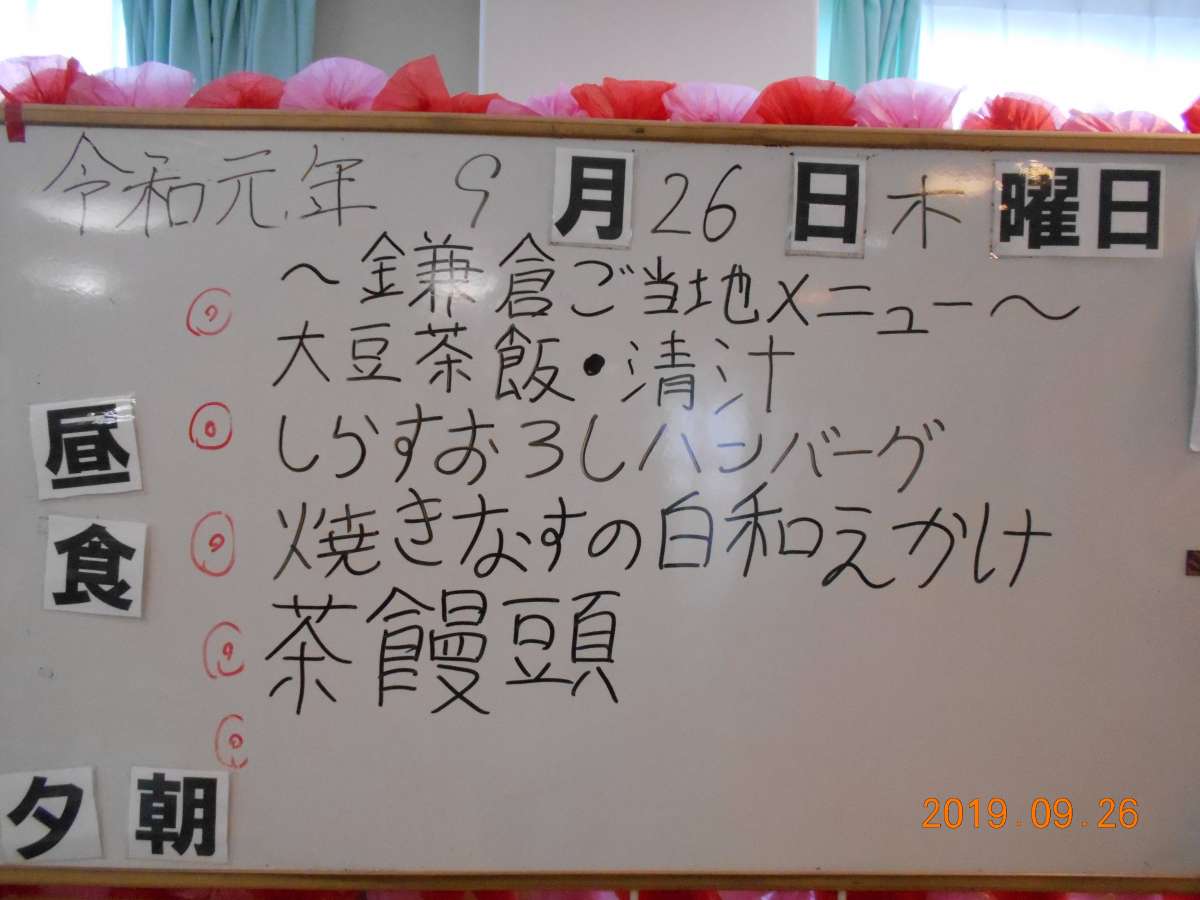 令和元年 9月26日木曜日
～鎌倉ご当地メニュー～
大豆茶飯・清汁
しらすおろしハンバーグ
焼きなすの白和えかけ
茶饅頭
昼食
夕 朝
2019.09.26